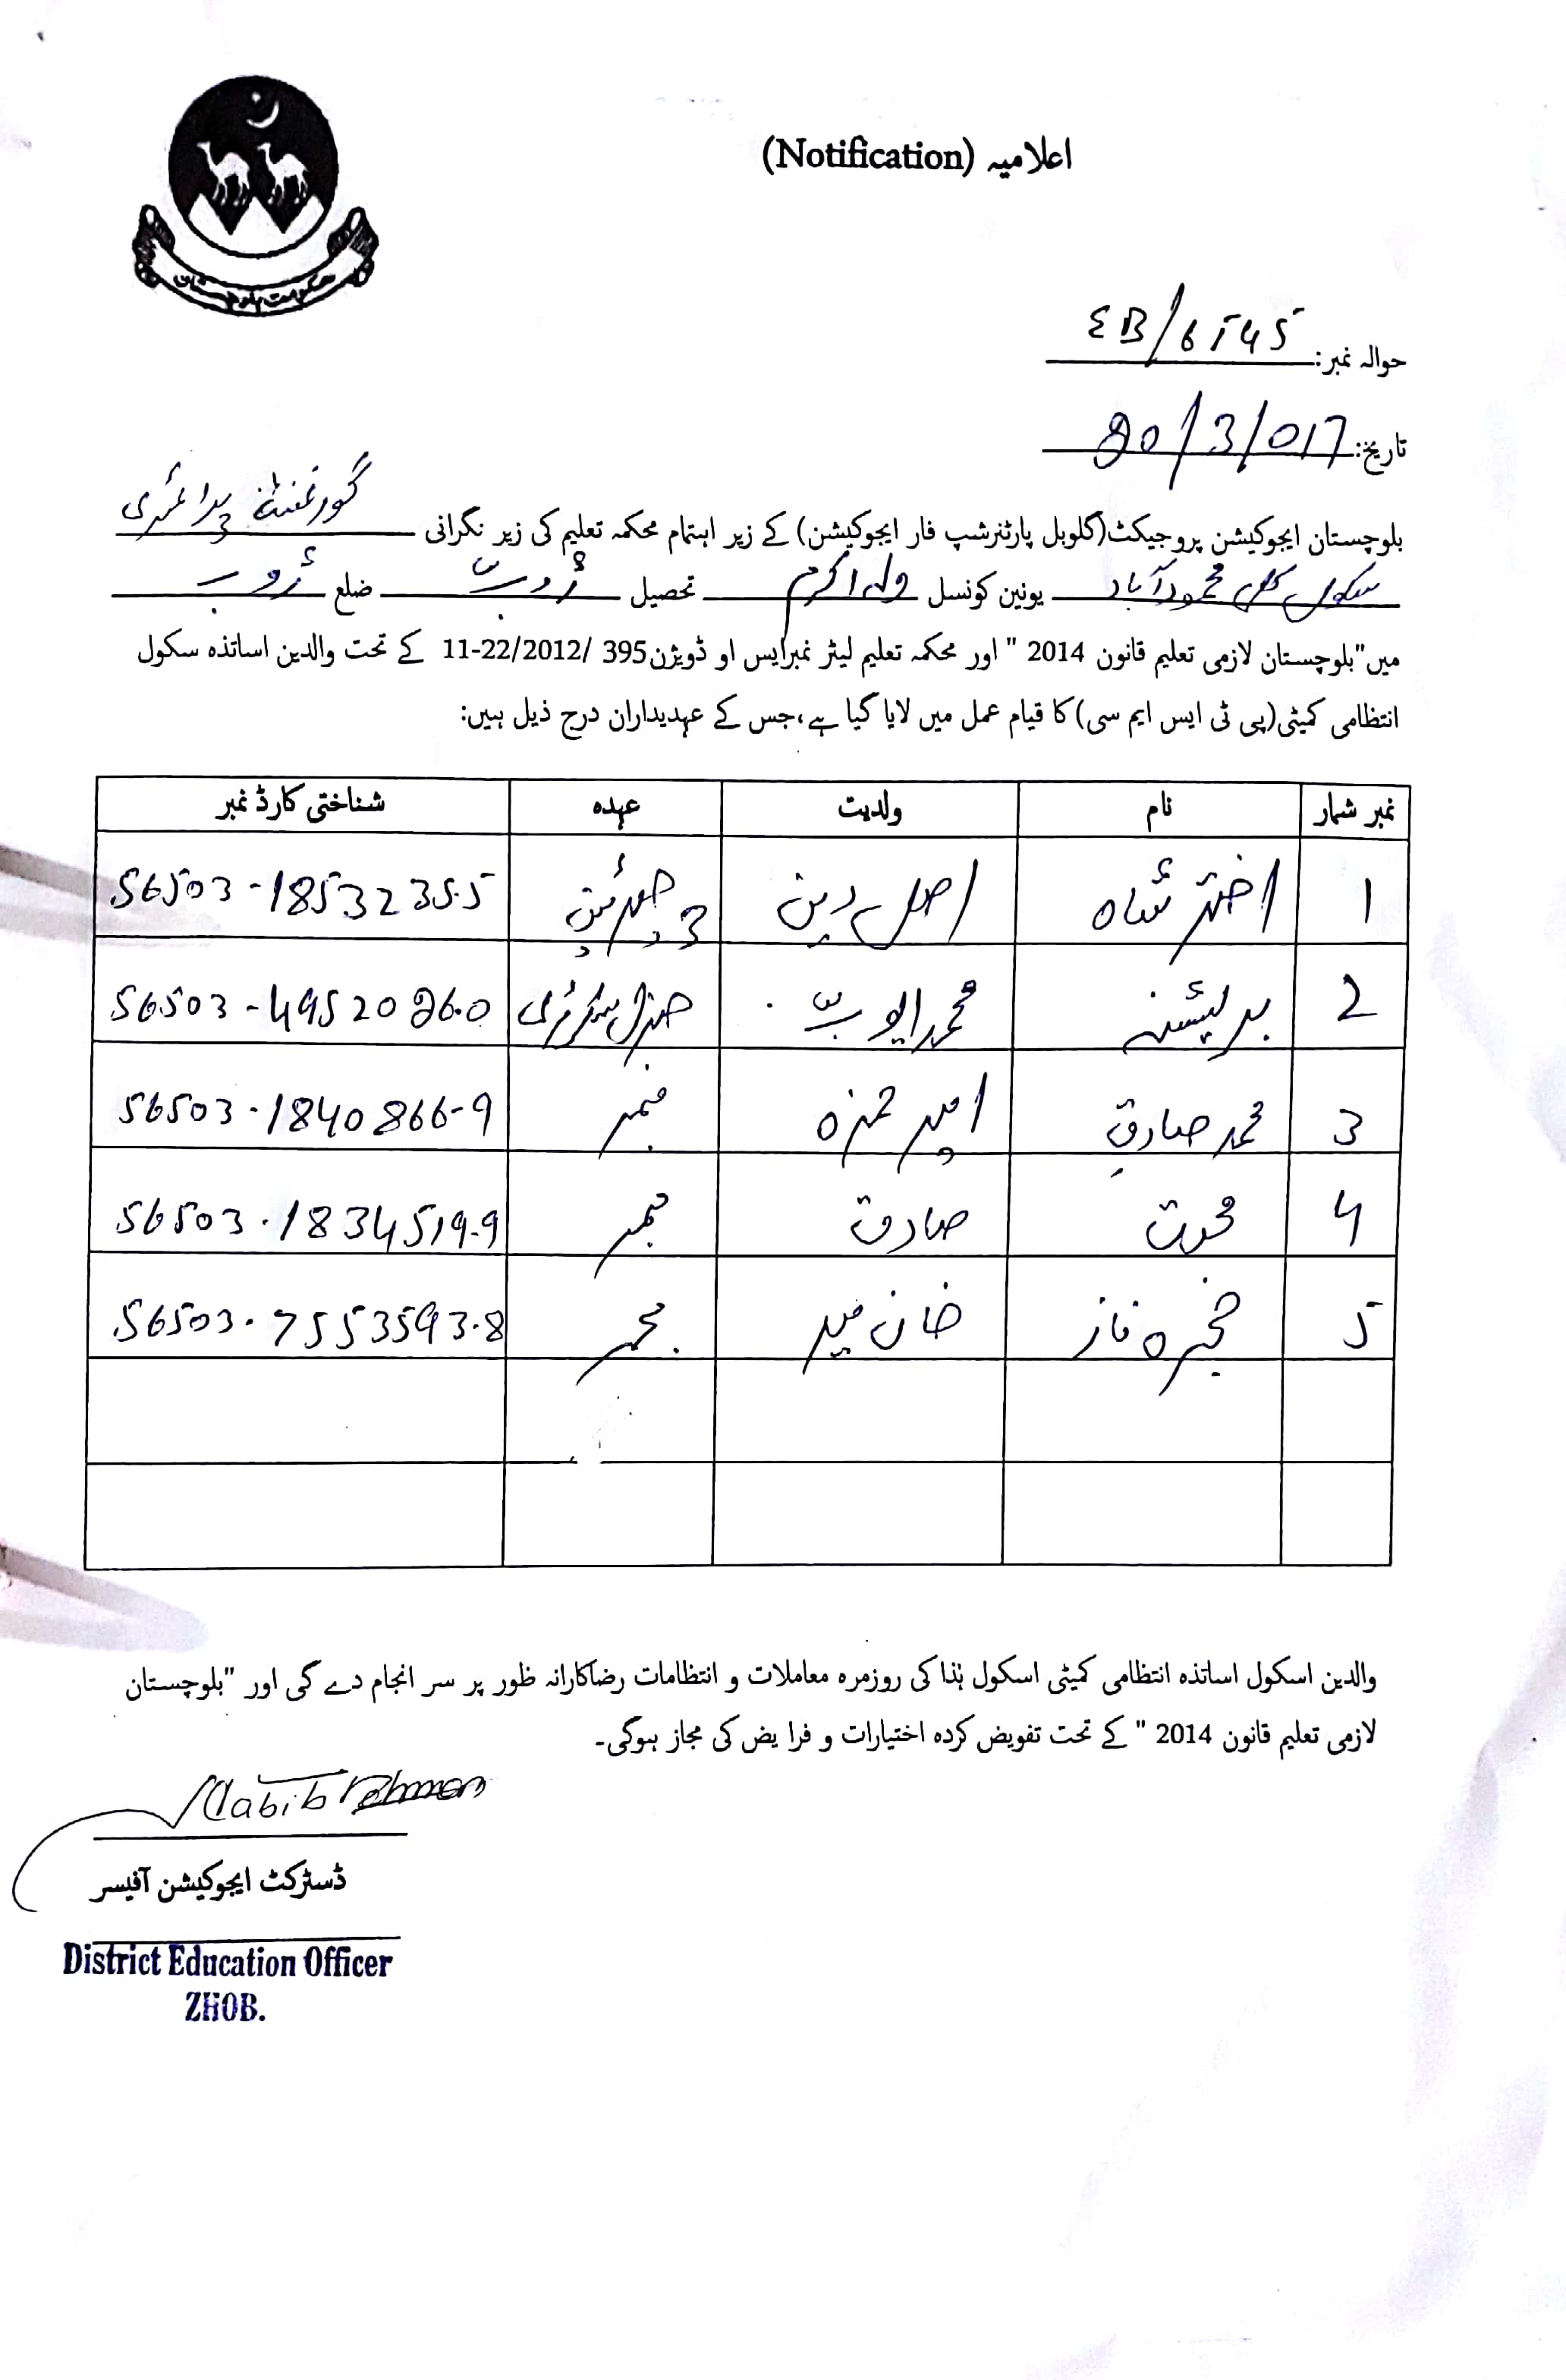 اعلامیہ (Notification)
حکومت بلوچستان
حوالہ نمبر: EB/6545
تاریخ: 20/3/017
بلوچستان ایجوکیشن پروجیکٹ(گلوبل پارٹنرشپ فار ایجوکیشن) کے زیر اہتمام محکمہ تعلیم کی زیر نگرانی گورنمنٹ پرائمری
سکول کلی محمودآباد یونین کونسل ولہ اکرم تحصیل ژوب ضلع ژوب
میں"بلوچستان لازمی تعلیم قانون 2014 " اور محکمہ تعلیم لیٹر نمبرایس او ڈویژن395 /11-22/2012 کے تحت والدین اساتذہ سکول
انتظامی کمیٹی(پی ٹی ایس ایم سی) کا قیام عمل میں لایا گیا ہے،جس کے عہدیداران درج ذیل ہیں:
نمبر شمار نام ولدیت عہدہ شناختی کارڈ نمبر
1 اختر شاہ اصل دین چیئرمین 56503-1853235-5
2 محمد ایوب جنرل سیکرٹری 56503-4952026-0
3 محمد صادق امیر حمزہ ممبر 56503-1840866-9
4 صادق ممبر 56503-1834519-9
5 خان میر ممبر 56503-7553593-8
والدین اسکول اساتذہ انتظامی کمیٹی اسکول ہٰذا کی روزمرہ معاملات و انتظامات رضاکارانہ طور پر سر انجام دے گی اور "بلوچستان
لازمی تعلیم قانون 2014 " کے تحت تفویض کردہ اختیارات و فرایض کی مجاز ہوگی۔
Habib Rehman
ڈسٹرکٹ ایجوکیشن آفیسر
District Education Officer
ZHOB.